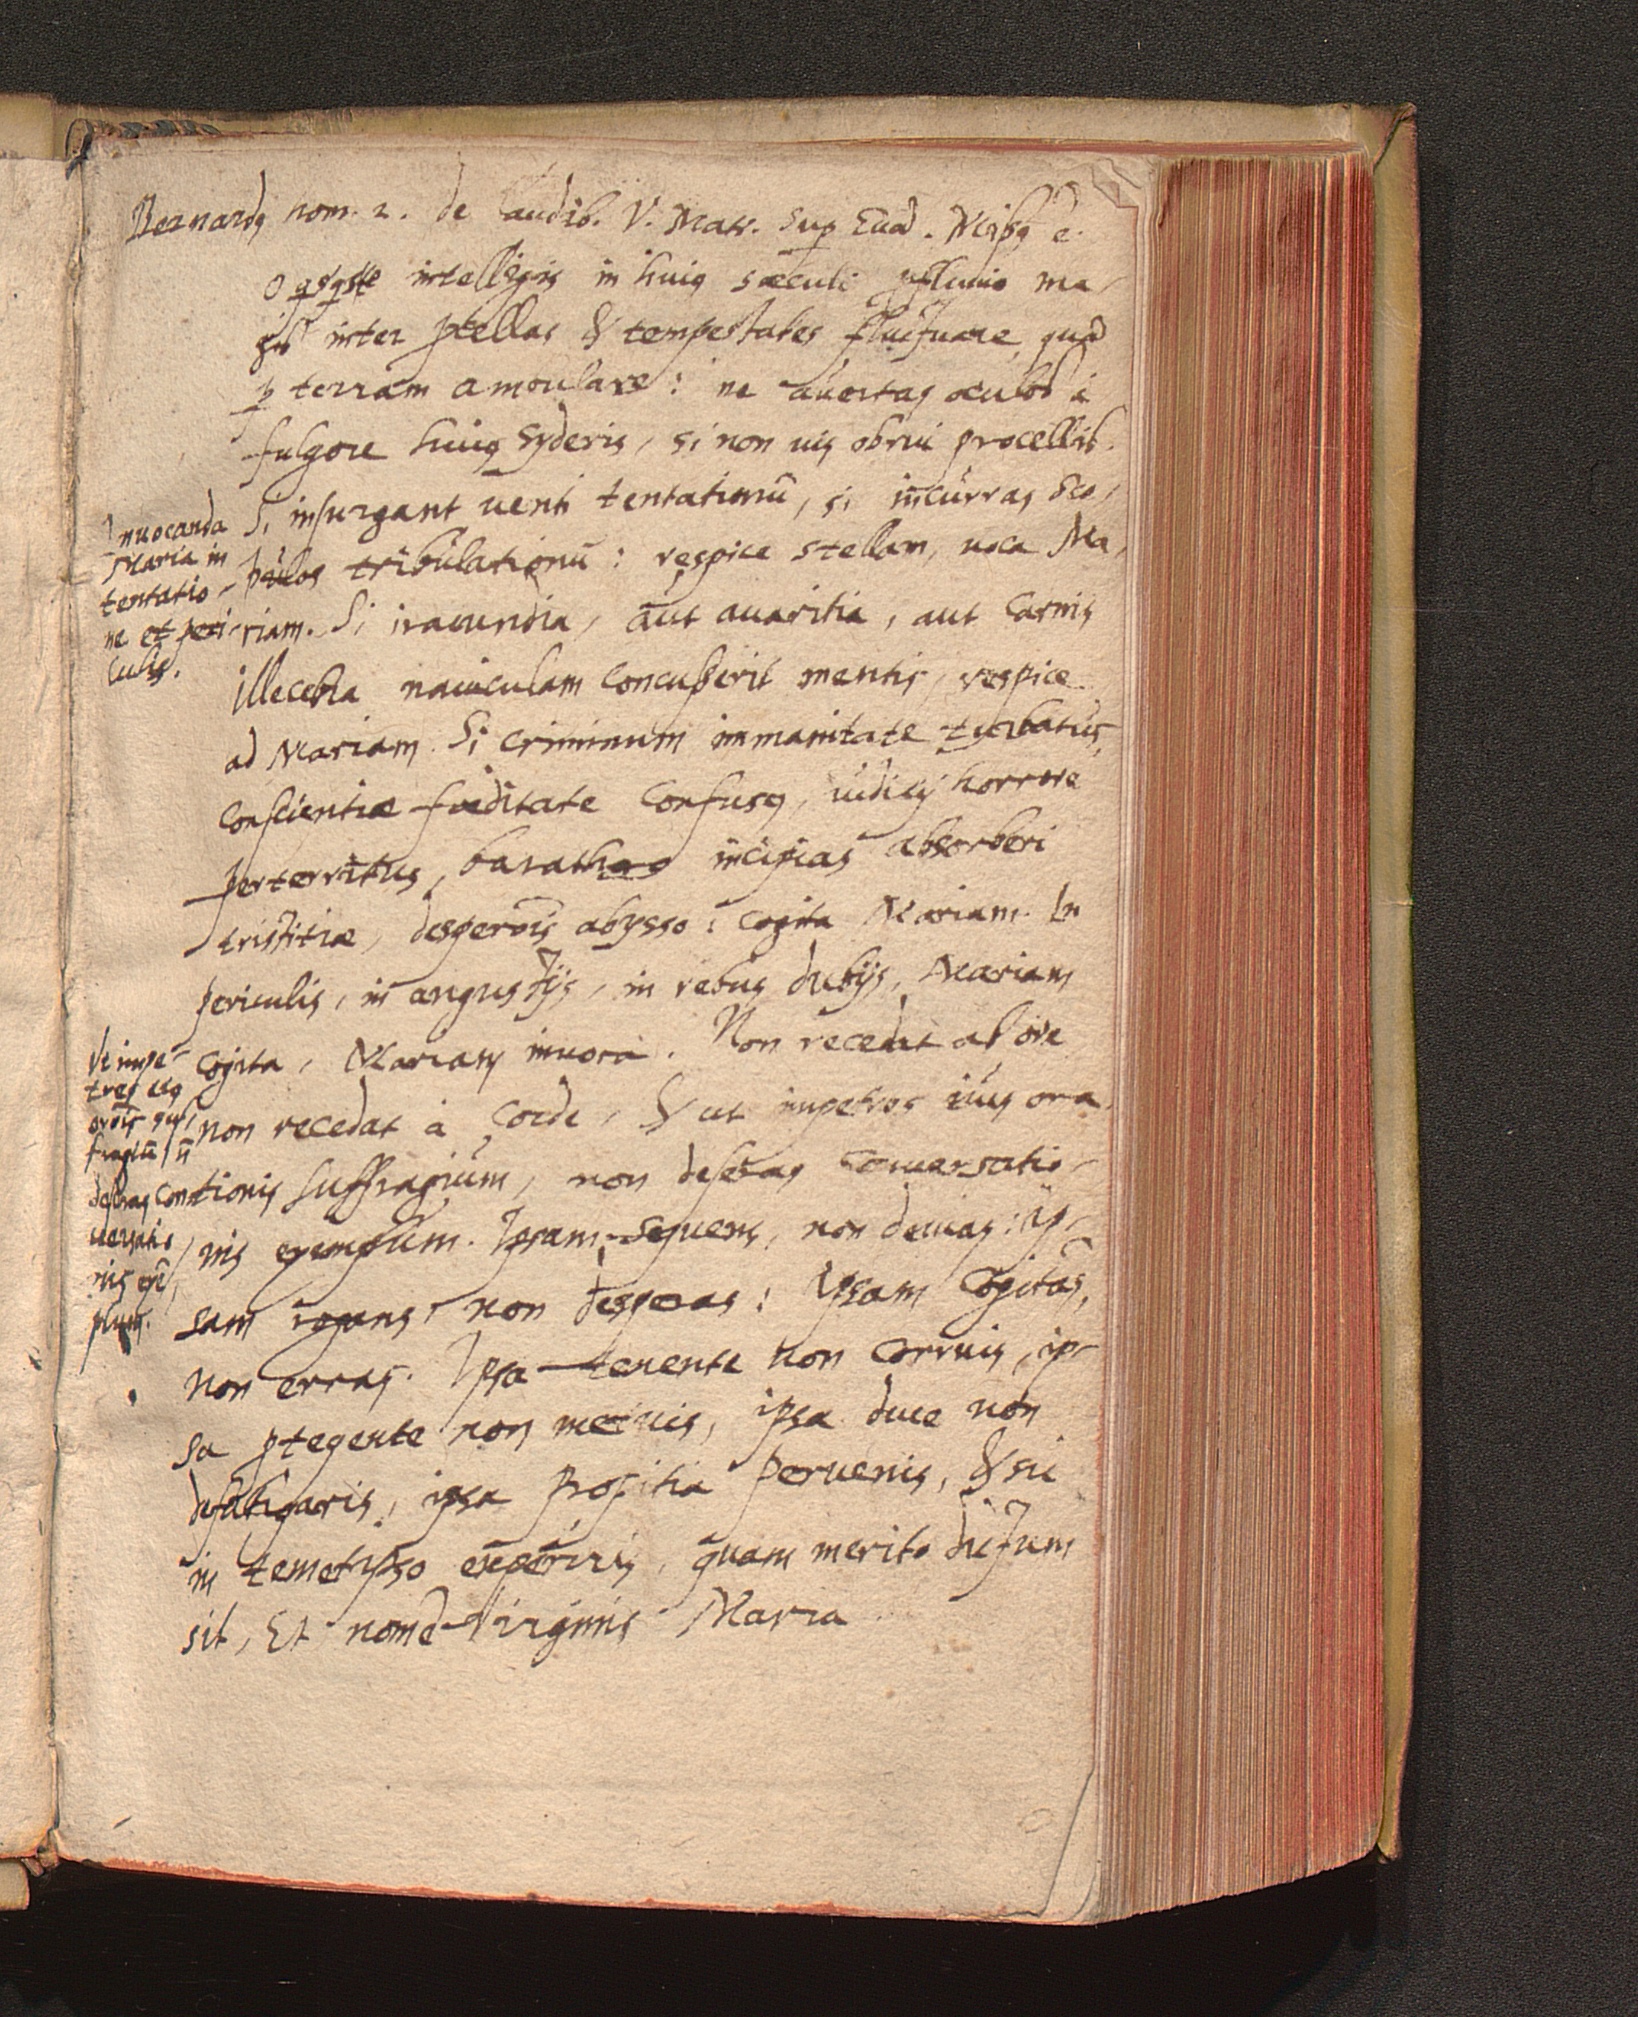 Bernardꝰ hom. 2. de laudib. V. Matr. sup Euā. Missꝰ ē.
O qsqs te intelligis in huiꝰ sæculi pfluuio ma-
gis inter pcellas & tempestates fluctuare, quā
ꝑ terram ambulare: ne auertas oculos à
fulgore huiꝰ syderis, si non uis obrui procellis.
Si insurgant uenti tentationū, si incurras sco-
pulos tribulationū: respice stellam, uoca Ma-
riam. Si iracundia, aut auaritia, aut Carnis
illecebra nauiculam concusserit mentis, respice
ad Mariam. Si criminum immanitate turbatus,
conscientiæ fœditate confusꝰ, iudicij horrore
perterritus, barathro incipias absorberi
tristitiæ, desperōis abysso: cogita Mariam. In
periculis, in angustijs, in rebus dubijs, Mariam
cogita, Mariam inuoca. Non recedat ab ore
non recedat à Corde, & ut impetres eius ora-
tionis suffragium, non deseras conuersatio-
nis exemplum. Ipsam sequens, non deuias: ip-
sam rogans non desperas: Ipsam Cogitas,
non erras. Ipsa tenente non corruis, ip-
sa ptegente non metuis, ipsa duce non
defatigaris, ipsa propitia peruenis, & sic
in temetipso experiris, quam merito dictum
sit, Et nomē Virginis Maria
Inuocanda
Maria in
tentatio-
ne et peri-
culis.
Vt impe-
tres eiꝰ
orōis suf-
fragiū ñ
deseras con-
uersatio-
nis exē-
plum.